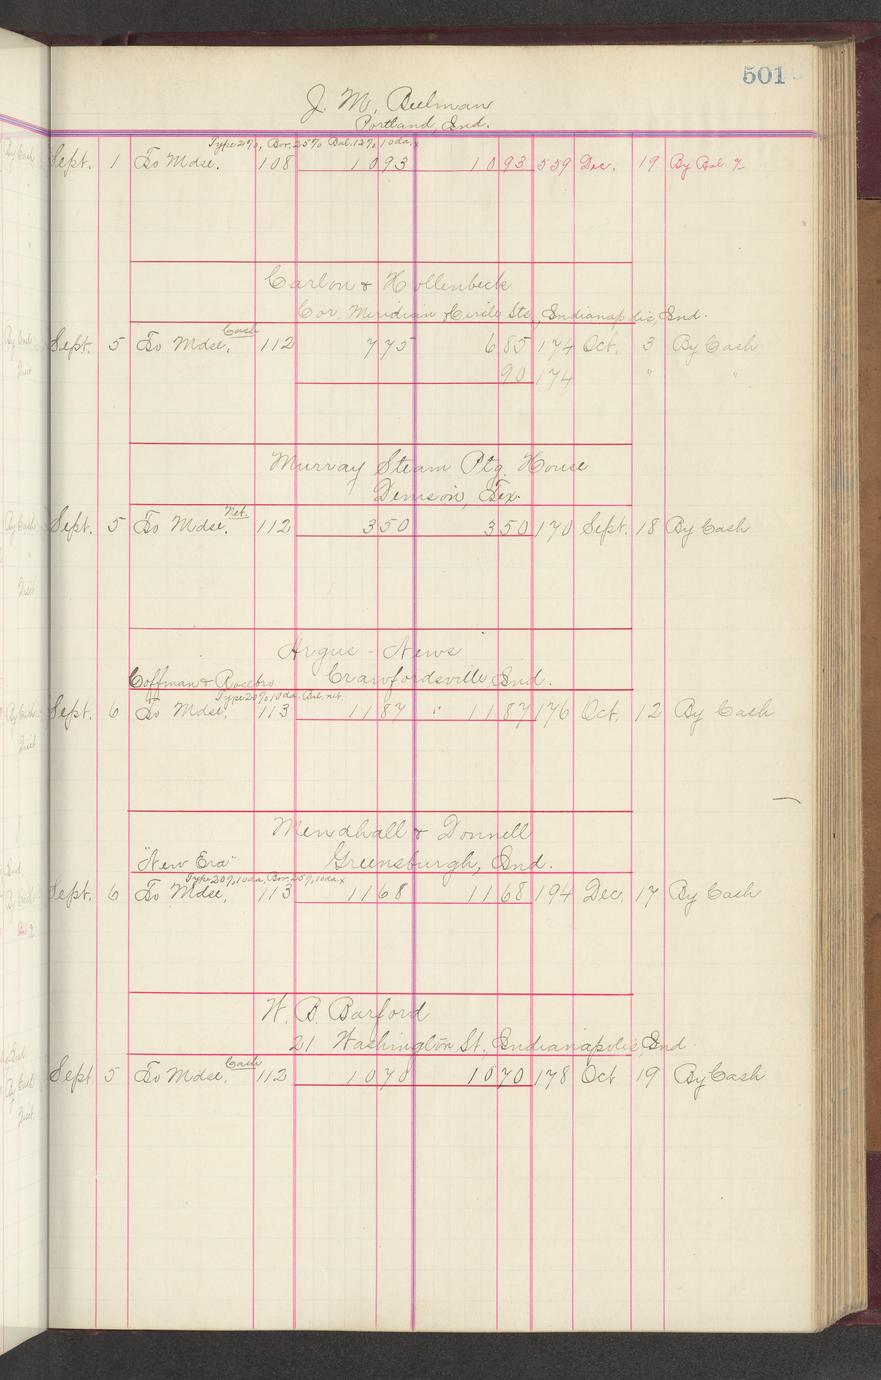 501
J. M. Bulman
Portland, Ind.
Type 21%, Bor. 25% Bal. 12% 10 da. x
Sept. 1 To Mdse. 108 1093 1093 559 Dec. 19 By Bal. %
Carlon & Hollenbeck
Cor. Meridian & Circle Sts, Indianapolis, Ind.
Cash
Sept. 5 To Mdse. 112 775 685 174 Oct. 3 By Cash
90 174 " "
Murray Steam Ptg. House
Denison, Tex.
Net.
Sept. 5 To Mdse. 112 350 350 170 Sept. 18 By Cash
Argus - News
Coffman & Rosebro Crawfordsville Ind.
Type 20% 10 da. Bal. net.
Sept. 6 To Mdse. 113 1187 " 1187 176 Oct. 12 By Cash
Mendhall & Donnell
"New Era" Greensburgh, Ind.
Type 20% 10 da, Bor. 25%, 10 da. x
Sept. 6 To Mdse. 113 1168 1168 194 Dec. 17 By Cash
W. B. Barford
21 Washington St, Indianapolis, Ind.
Cash
Sept. 5 To Mdse. 112 1070 1070 178 Oct 19 By Cash